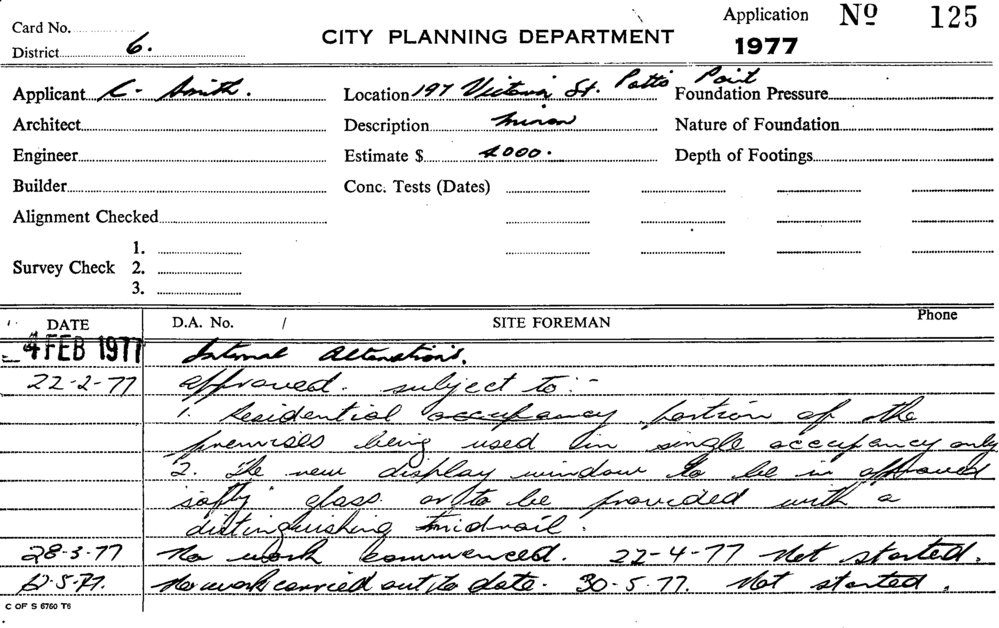 Card No.
Application No 125
District 6.
CITY PLANNING DEPARTMENT
1977
Applicant C. Smith. Location 197 Victoria St. Potts Point Foundation Pressure
Architect Description minor Nature of Foundation
Engineer Estimate $ 4000. Depth of Footings
Builder Conc. Tests (Dates)
Alignment Checked
1.
Survey Check 2.
3.
DATE D.A. No. / SITE FOREMAN Phone
4 FEB 1977 Internal Alterations.
22-2-77 approved. subject to:-
1. Residential occupancy portion of the
premises being used in single occupancy only
2. The new display window to be in approved
safty glass or to be provided with a
distinguishing midrail.
28-3-77 No work commenced. 22-4-77 Not started.
-5-77. No work carried out to date. 30-5-77. Not started.
C OF S 6760 T6